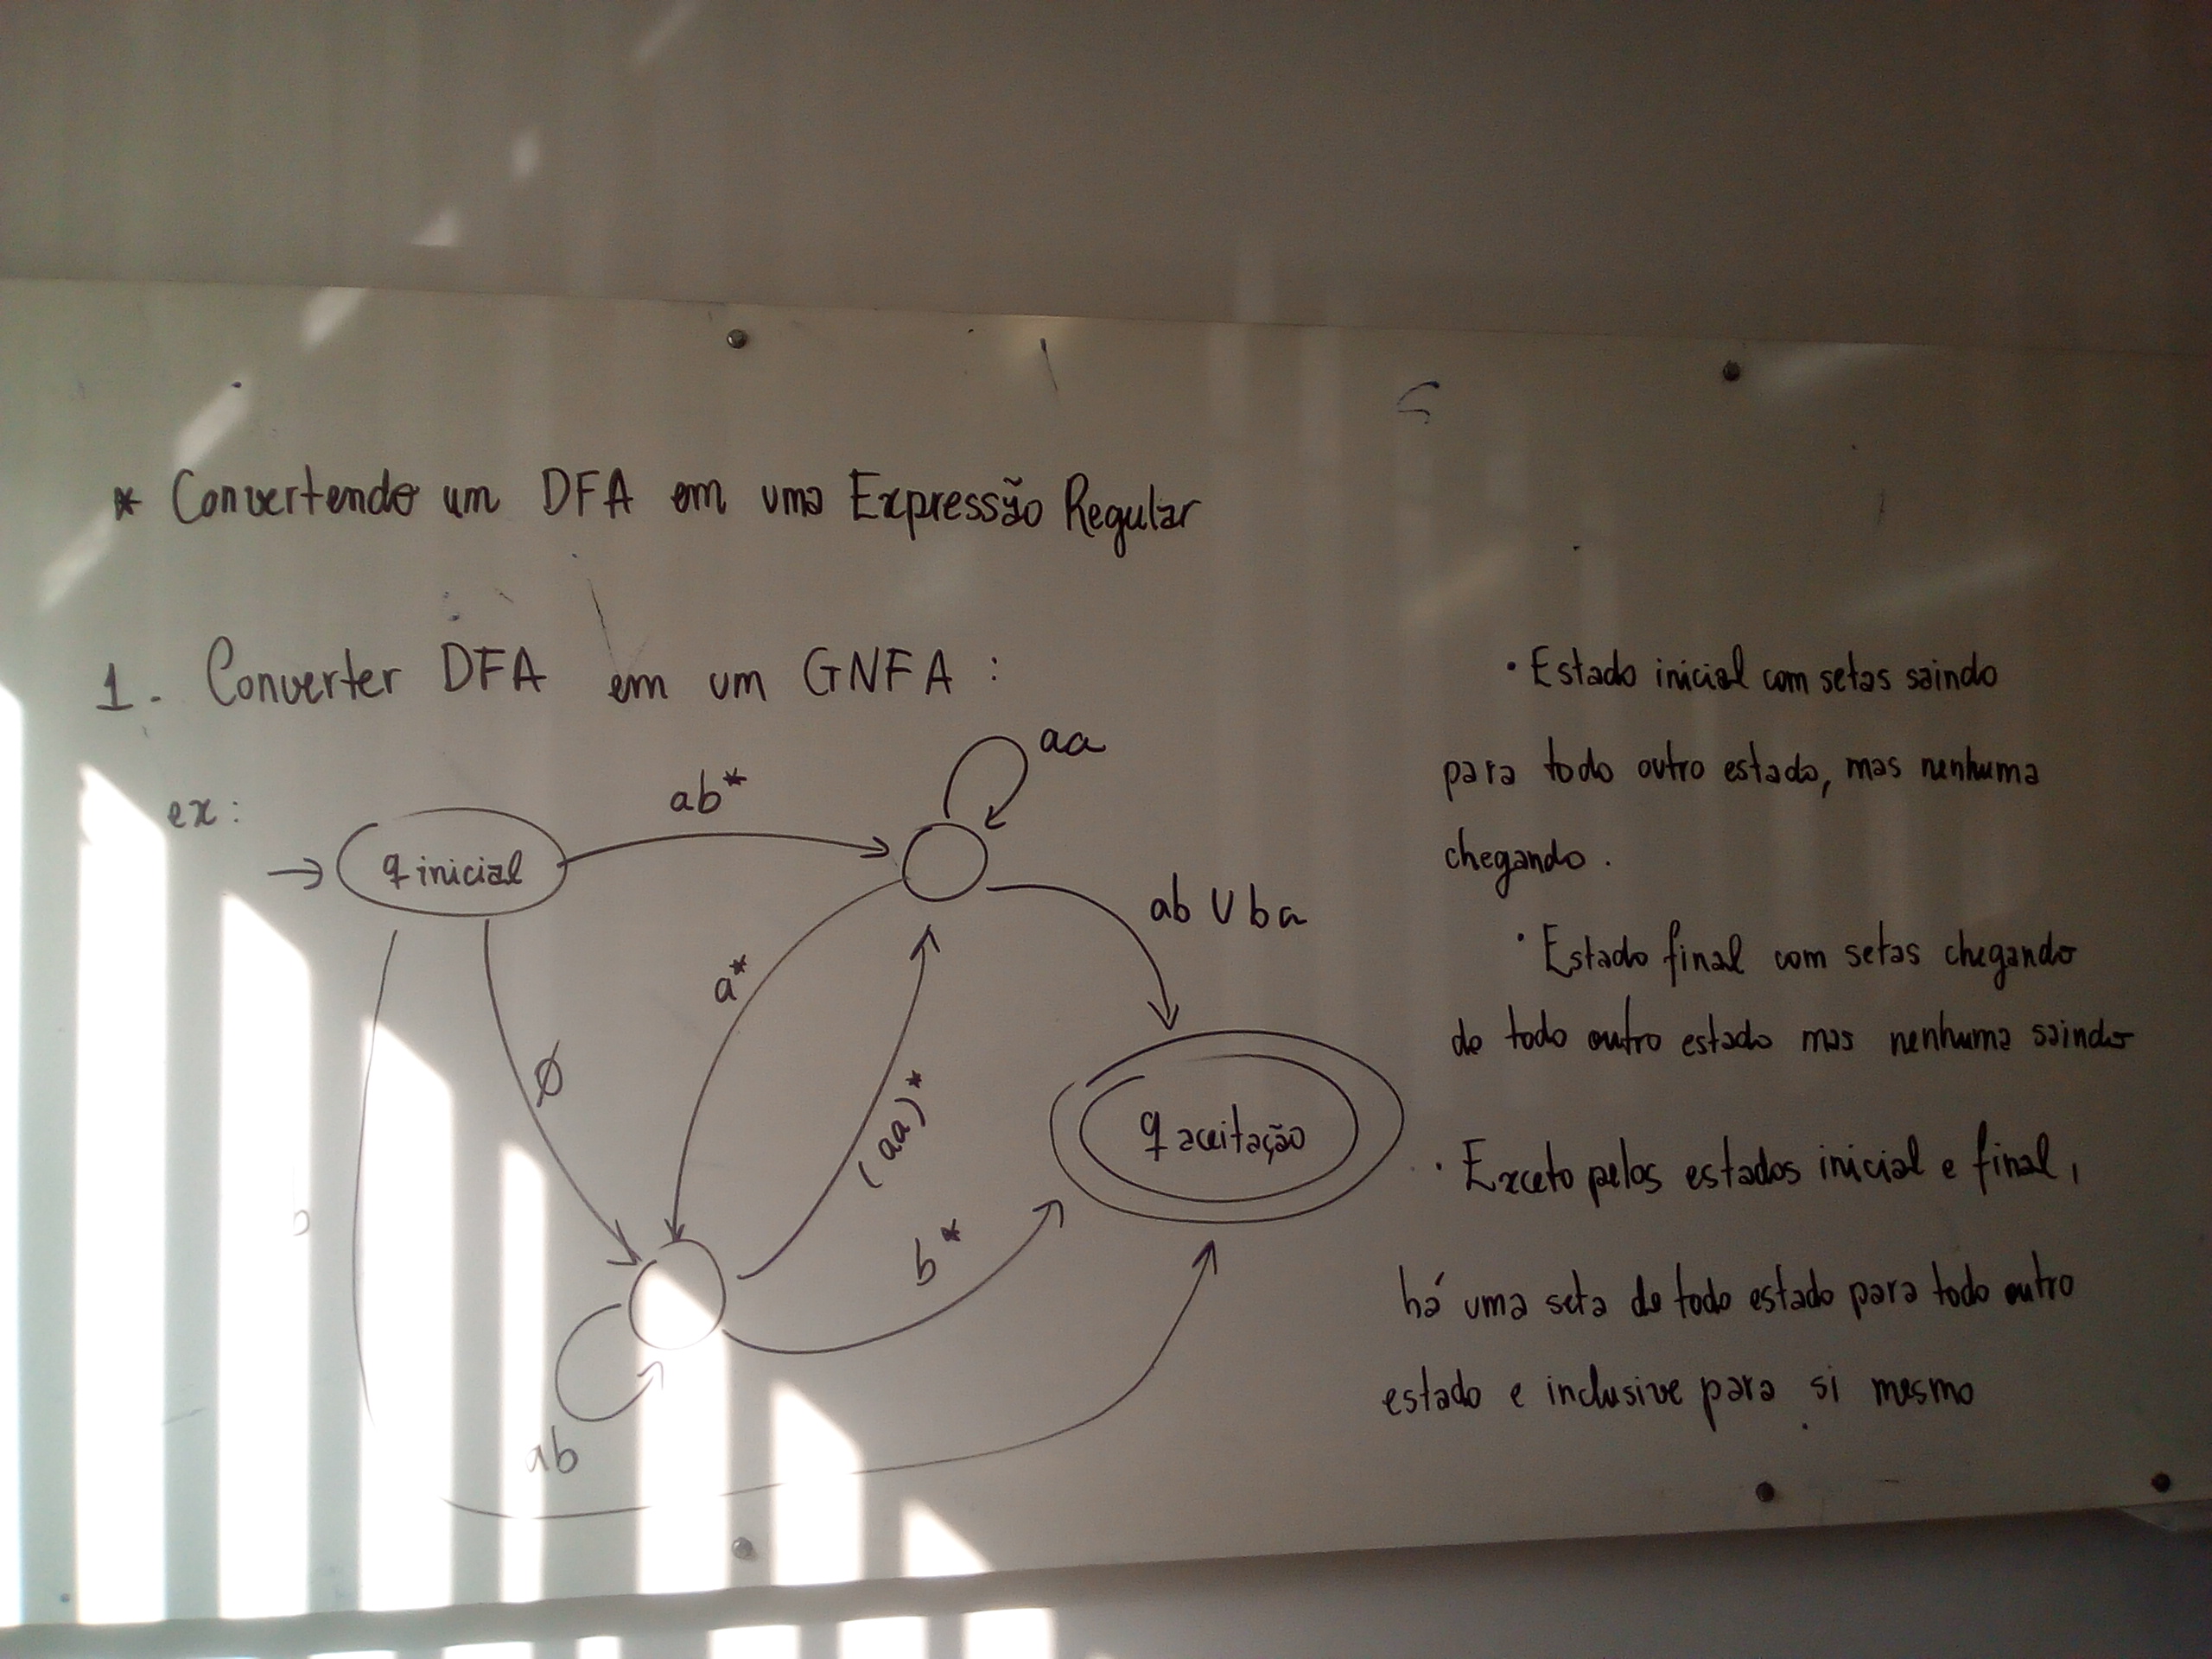 * Convertendo um DFA em uma Expressão Regular
1. Converter DFA em um GNFA :
ex:
q inicial
ab*
aa
ab ∪ ba
a*
∅
(aa)*
b*
b
ab
q aceitação
• Estado inicial com setas saindo
para todo outro estado, mas nenhuma
chegando.
• Estado final com setas chegando
de todo outro estado mas nenhuma saindo
• Exceto pelos estados inicial e final,
há uma seta de todo estado para todo outro
estado e inclusive para si mesmo